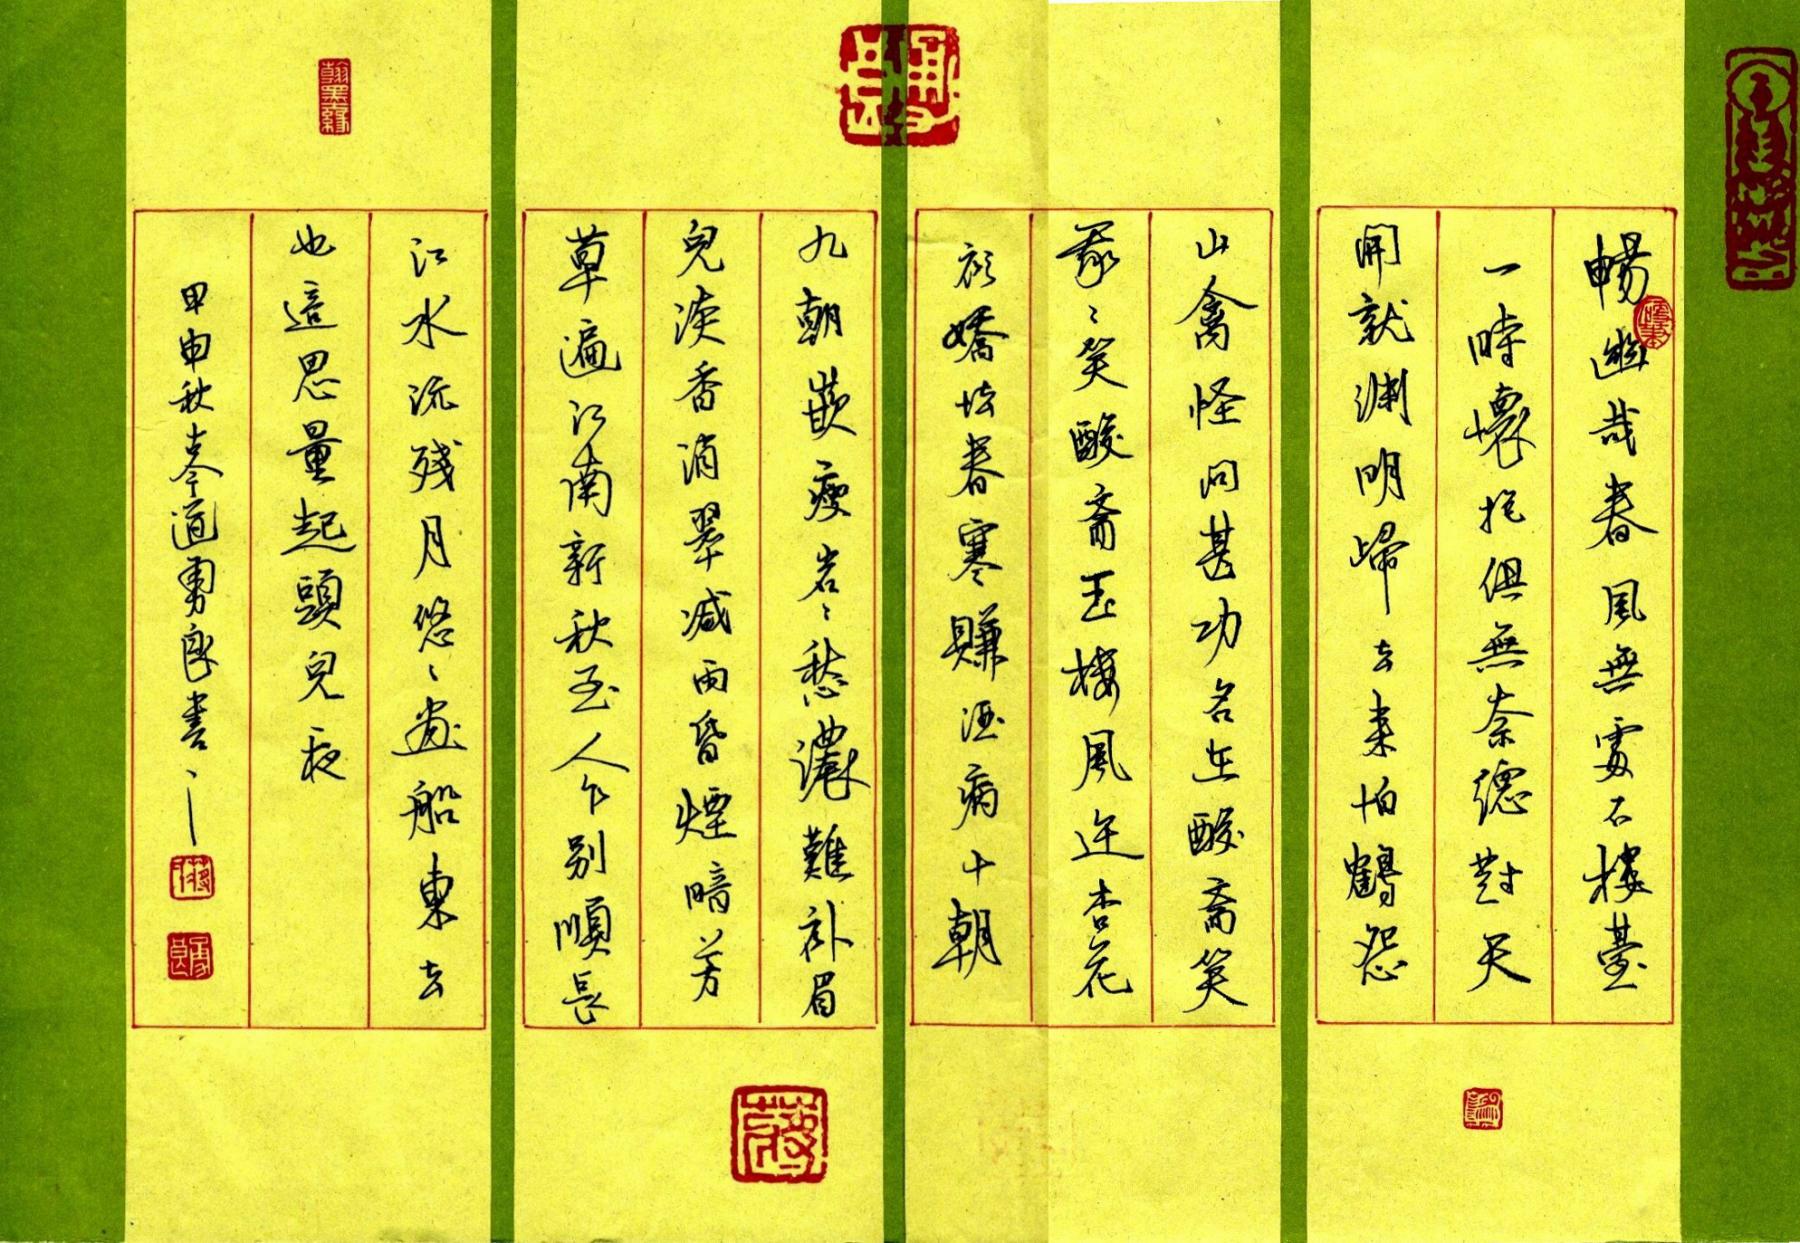 暢幽哉春風無處不樓臺
一時懷抱俱無奈總對天
開就淵明歸去來怕鶴怨
山禽怪問甚功名在酸齋笑
我〻笑酸齋玉樓風迕杏花
衫嬌怯春寒賺酒病十朝
九朝嵌瘦岩〻愁濃難補眉
兒淡香消翠減雨昏煙暗芳
草遍江南新秋至人乍別順長
江水流殘月悠〻畫船東去
也這思量起頭兒夜
甲申秋道勇郎書
翰墨緣
蔣